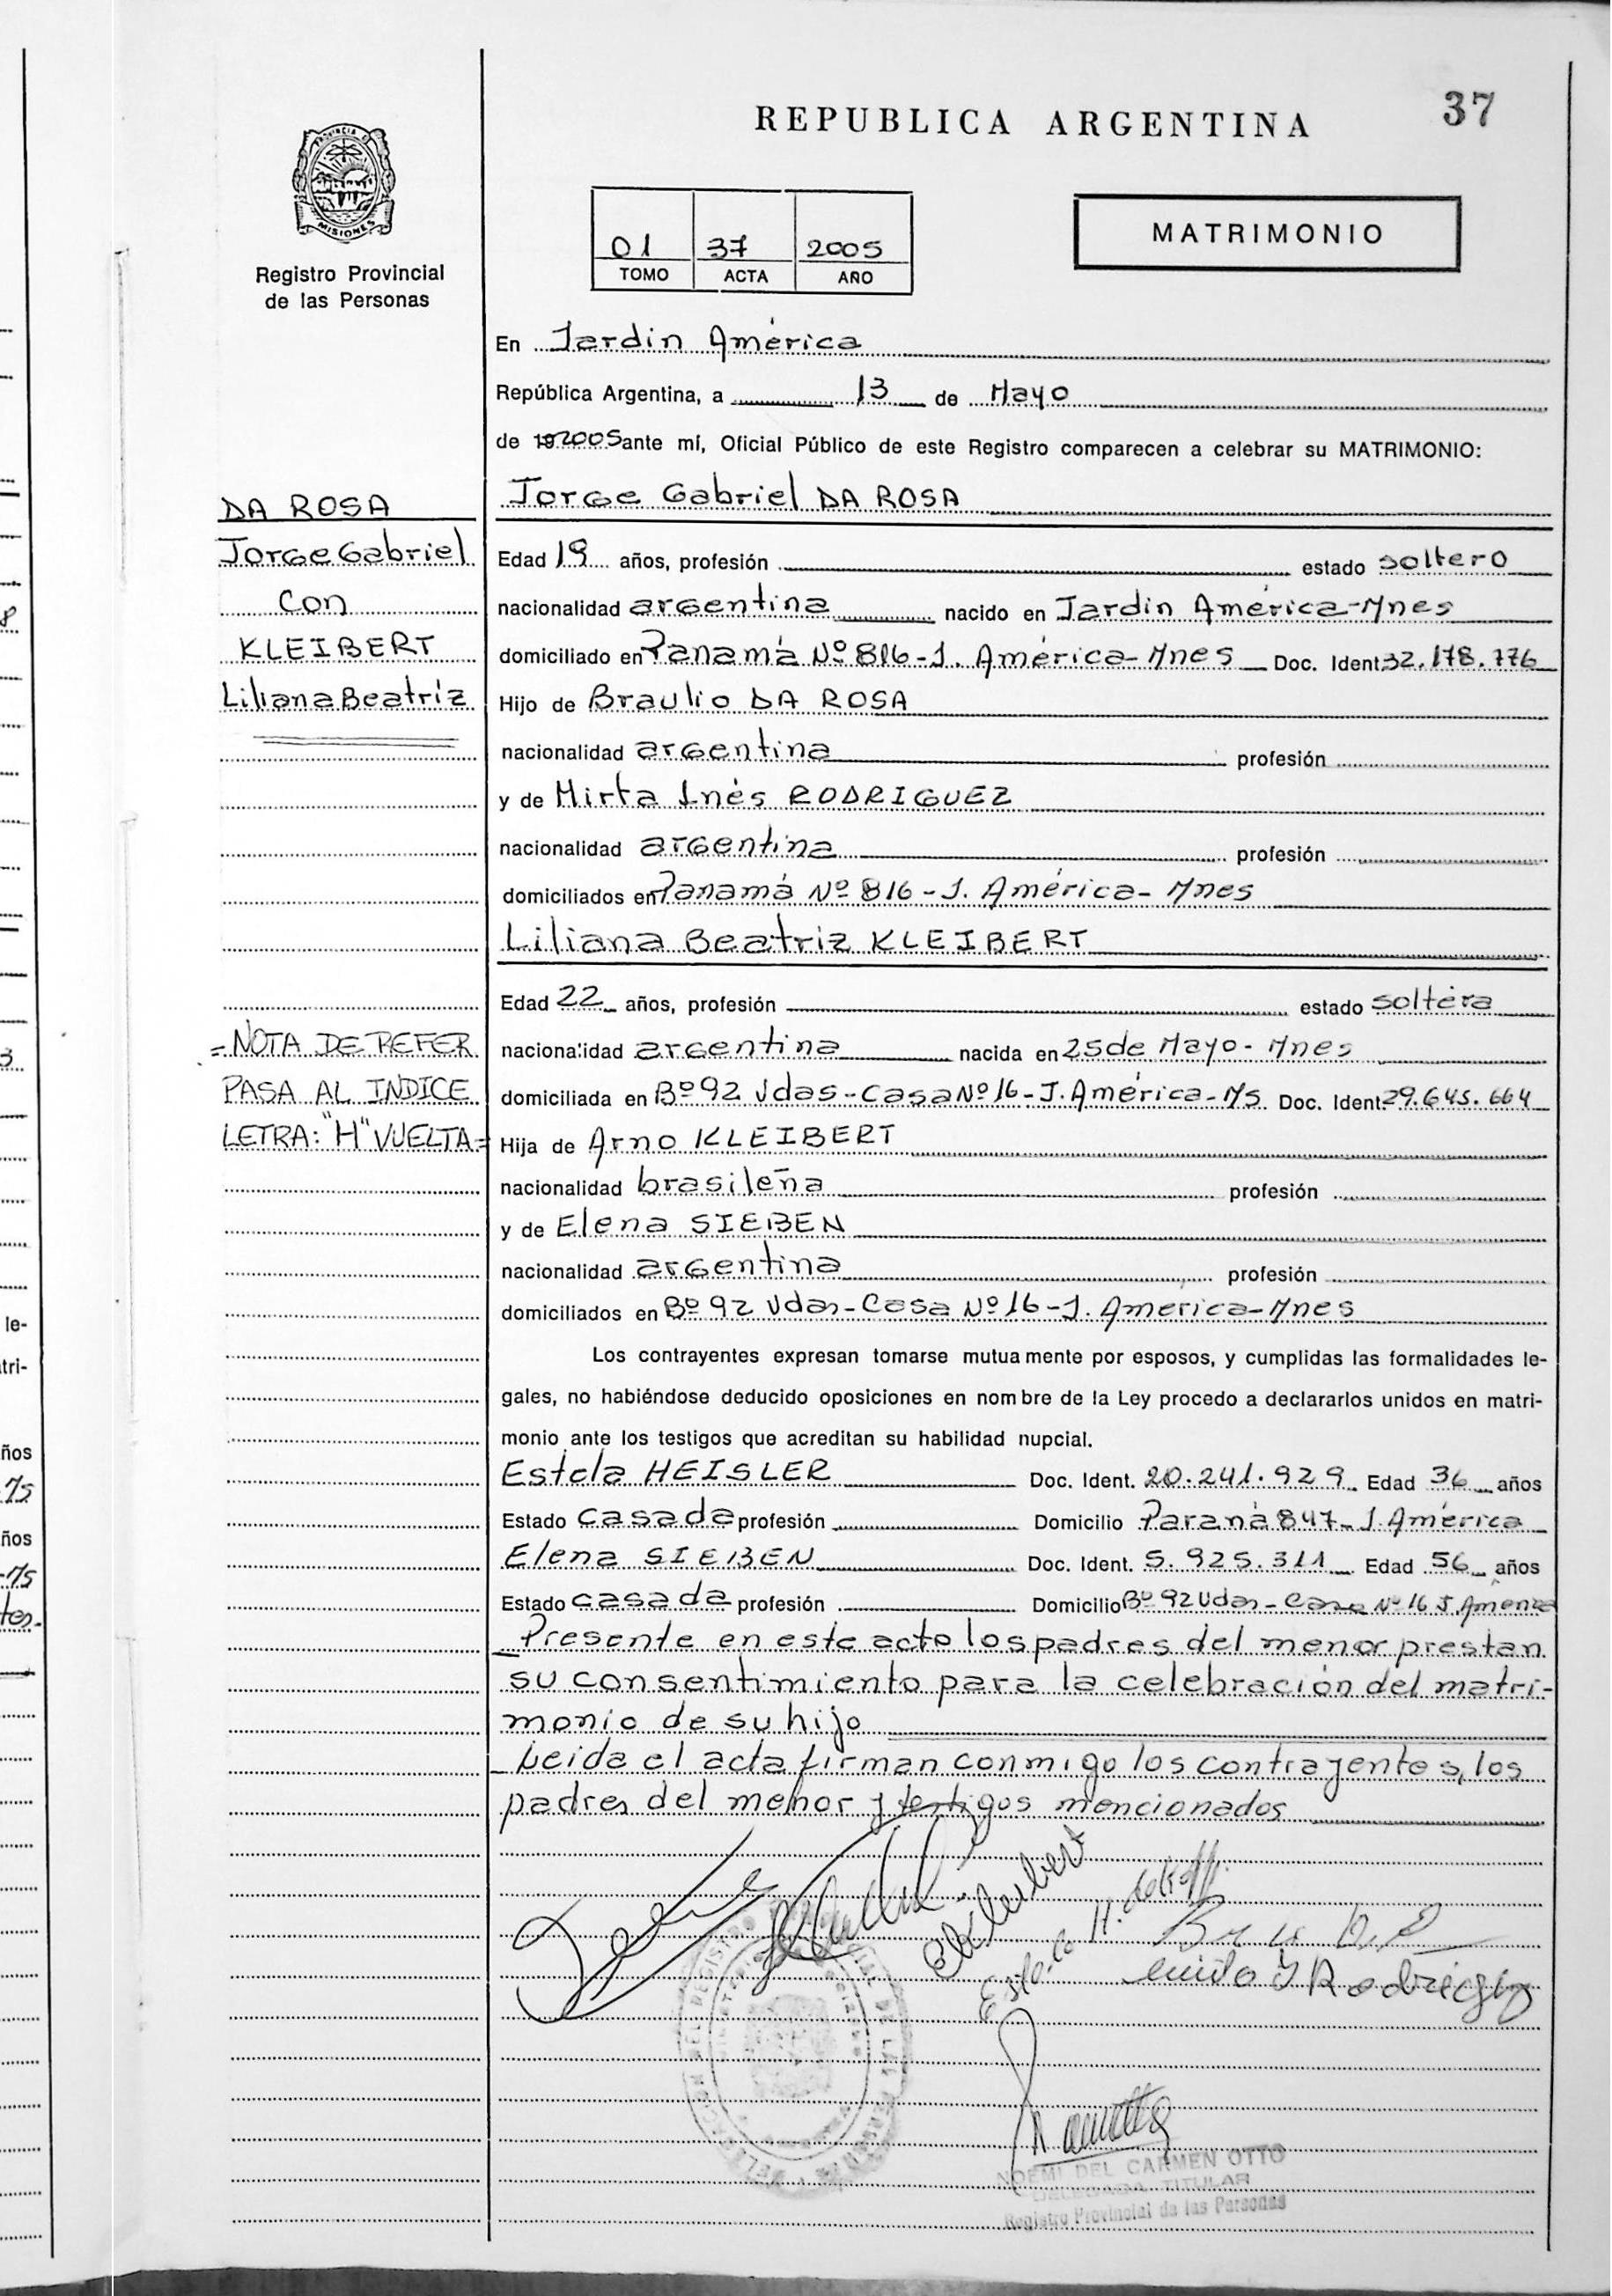 REPUBLICA ARGENTINA
37
PROVINCIA DE
MISIONES
Registro Provincial
de las Personas
01 37 2005
TOMO ACTA AÑO
MATRIMONIO
En Jardin América
República Argentina, a 13 de Mayo
de 19 2005 ante mí, Oficial Público de este Registro comparecen a celebrar su MATRIMONIO:
DA ROSA
Jorge Gabriel
Con
KLEIBERT
Liliana Beatriz
Jorge Gabriel DA ROSA
Edad 19 años, profesión estado soltero
nacionalidad argentina nacido en Jardin América-Mnes
domiciliado en Panamá Nº 816-J. América-Mnes Doc. Ident. 32.178.776
Hijo de Braulio DA ROSA
nacionalidad argentina profesión
y de Mirta Inés RODRIGUEZ
nacionalidad argentina profesión
domiciliados en Panamá Nº 816-J. América-Mnes
Liliana Beatriz KLEIBERT
Edad 22 años, profesión estado soltera
=NOTA DE REFER
PASA AL INDICE
LETRA: "H" VUELTA=
nacionalidad argentina nacida en 25 de Mayo-Mnes
domiciliada en Bº 92 Vdas-Casa Nº 16-J. América-Ms Doc. Ident. 29.645.664
Hija de Arno KLEIBERT
nacionalidad brasileña profesión
y de Elena SIEBEN
nacionalidad argentina profesión
domiciliados en Bº 92 Vdas-Casa Nº 16-J. América-Mnes
Los contrayentes expresan tomarse mutuamente por esposos, y cumplidas las formalidades le-
gales, no habiéndose deducido oposiciones en nombre de la Ley procedo a declararlos unidos en matri-
monio ante los testigos que acreditan su habilidad nupcial.
Estela HEISLER Doc. Ident. 20.241.929 Edad 36 años
Estado casada profesión Domicilio Paraná 847-J. América
Elena SIEBEN Doc. Ident. 5.925.311 Edad 56 años
Estado casada profesión Domicilio Bº 92 Vdas-Casa Nº 16 J. América
Presente en este acto los padres del menor prestan
su consentimiento para la celebración del matri-
monio de su hijo
Leida el acta firman conmigo los contrayentes, los
padres del menor y testigos mencionados
NOEMI DEL CARMEN OTTO
DELEGADA TITULAR
Registro Provincial de las Personas
le-
tri-
ños
-Ms
ños
-Ms